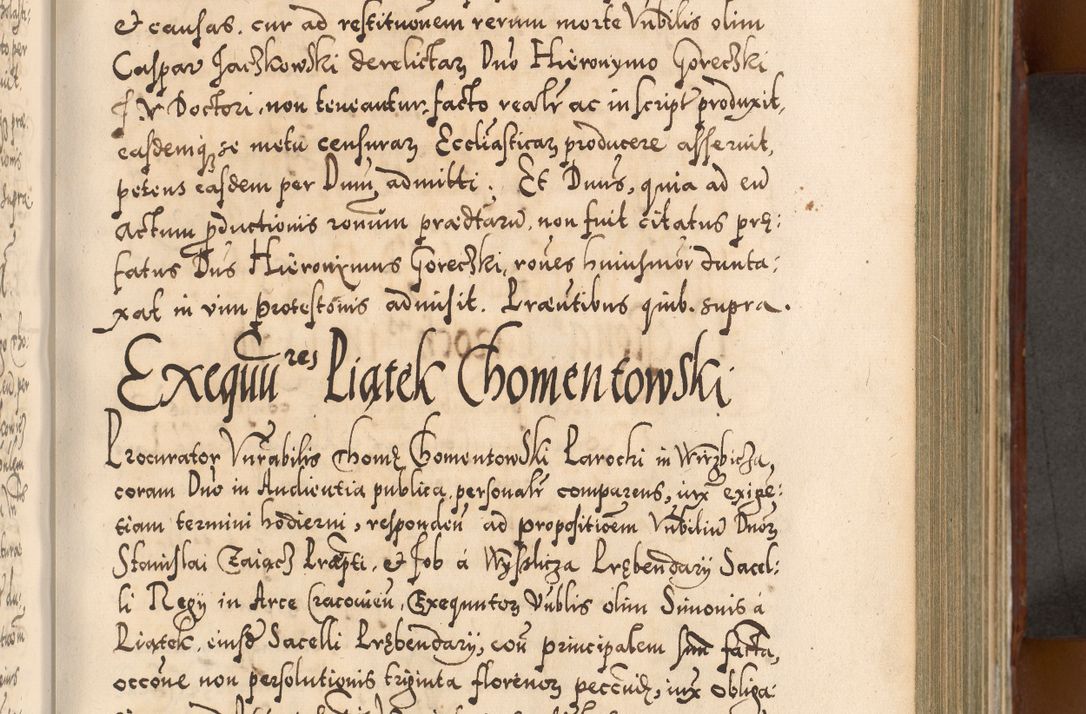 & causas. cur ad restitutionem rerum morte Vnbilis olim
Caspar Jaczkowski derelictarz Dno Hieronymo Goreczki
J V Doctori, non teneantur, facto realr ac in script produxit,
easdemq se metu censurarz Eccliasticarz producere asseruit,
petens easdem per Dnum admitti. Et Dnus, quia ad eu
actum productionis ronum prædtaru, non fuit citatus prę:
fatus Dus Hieronymus Goreczki, rones huiusmor dunta:
xat in vim protestonis admisit. Præutibus quib. supra.
Exequuu res Piątek Chomentowski
Procurator Vnrabilis Thomę Chomentowski Parochi in Wirzbicza,
coram Dno in Audientia publica personalr comparens, iux exige:
tiam termini hodierni, responden ad propositioem Vnbiliu Dnorz
Stanislai Zaiącz Præpti, & Job á Wyslicza Prębendarÿ Sacel:
li Regÿ in Arce Cracouien, Exequutorz Vnblis olim Simonis á
Piątek, eiusd Sacelli Prębendarÿ, cou principalem facta,
occone non persolutionis triginta florenorz peccuń, iux obliga: